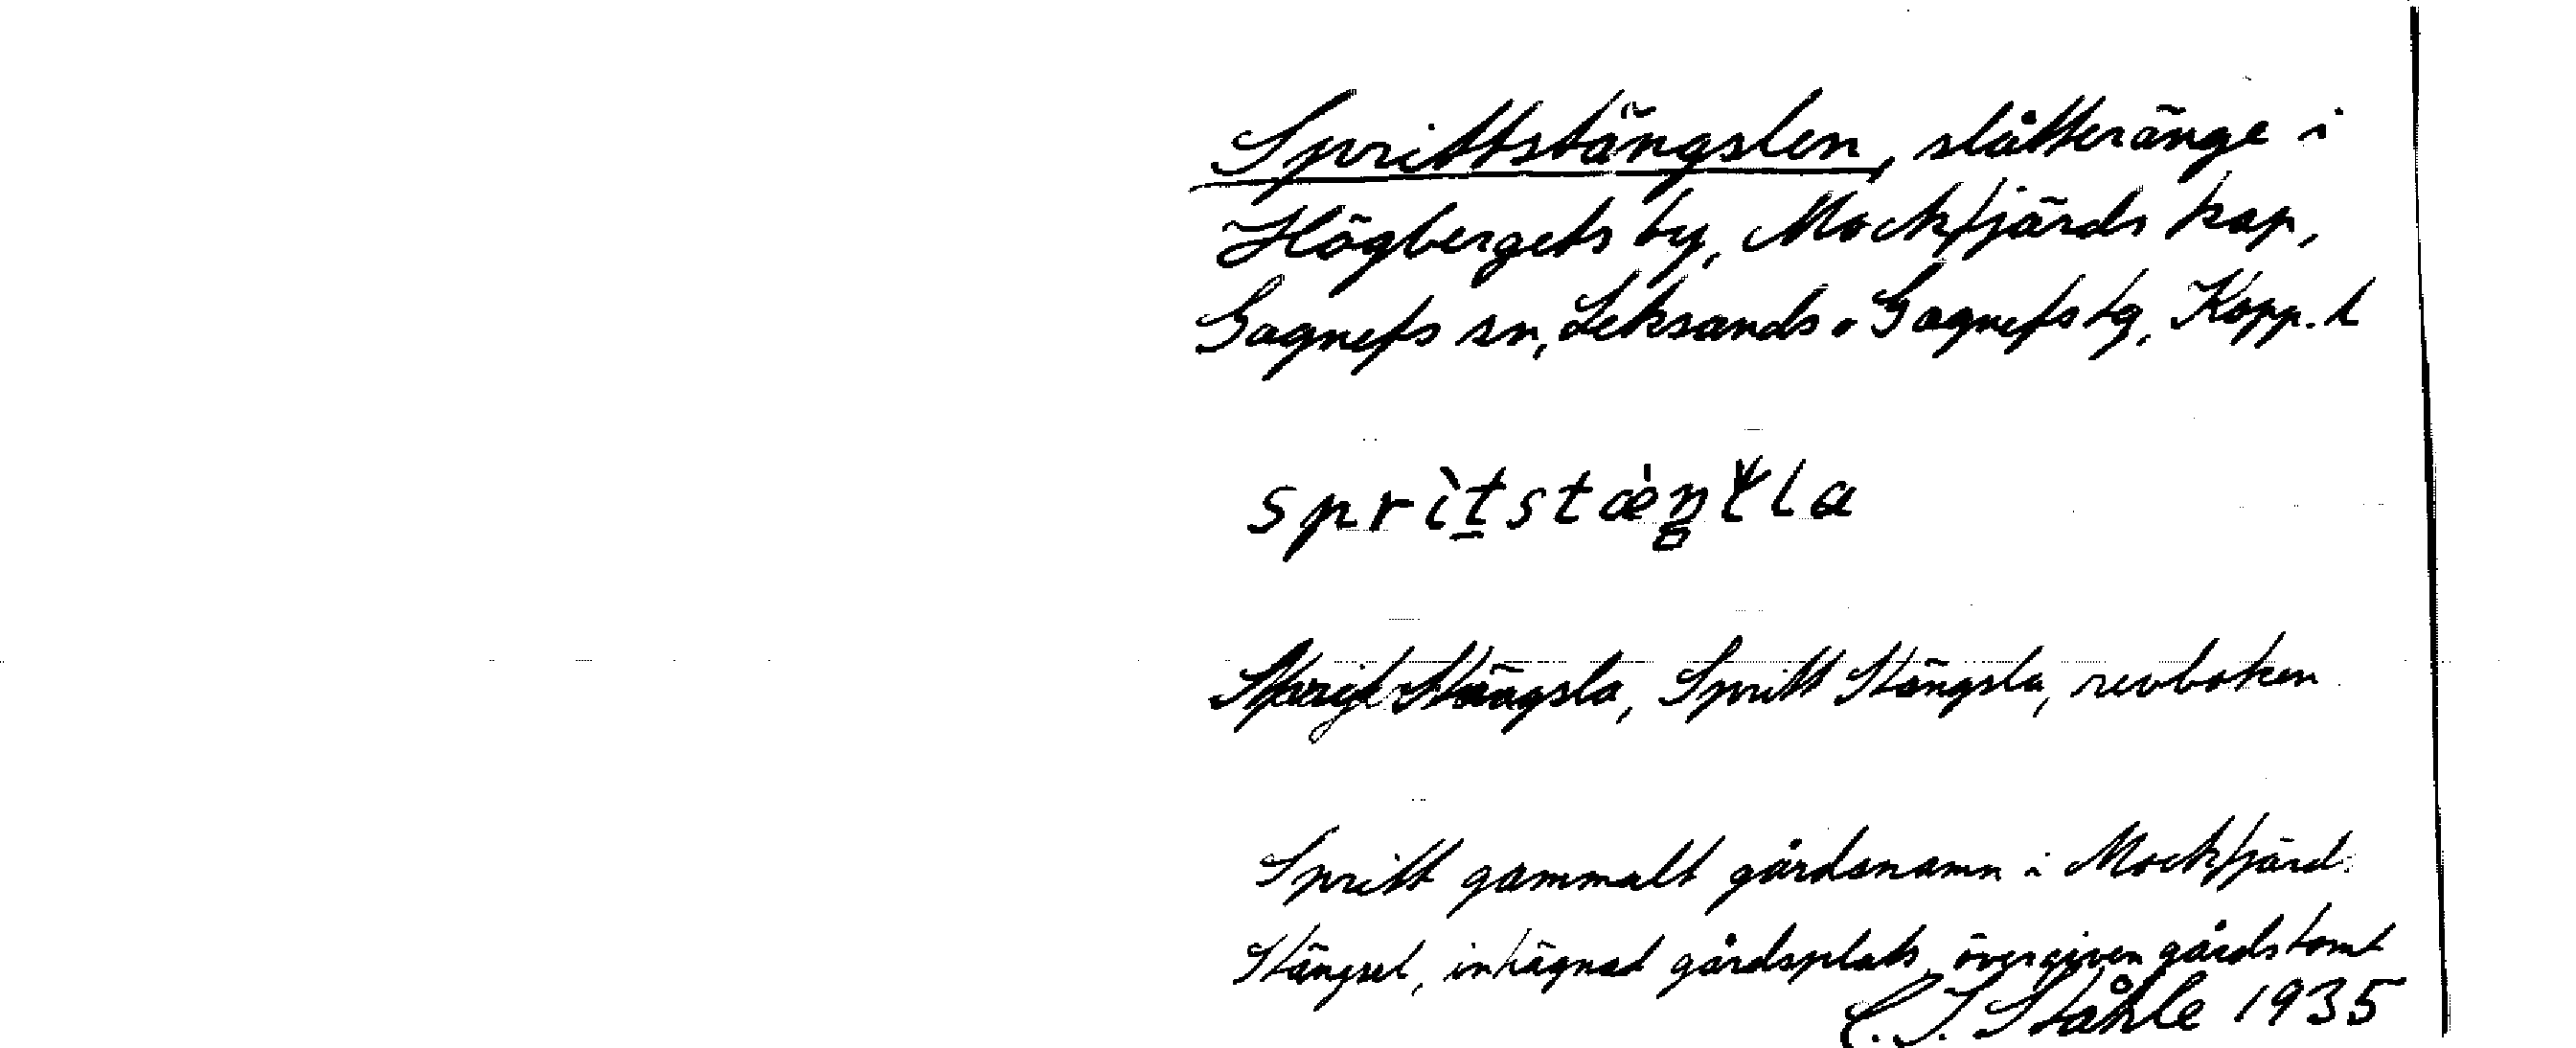 Sprittstängslen, slåtteränge i
Högbergets by, Mockfjärds kap,
Gagnefs sn, Leksands o Gagnefs tg, Kopp. l
Stängsla, Spritt Stängsla, revboken
Spritt gammalt gårdsnamn i Mockfjärd.
Stängsel, inhägnad gårdsplats, övergiven gårdstomt
C. I. Ståhle 1935